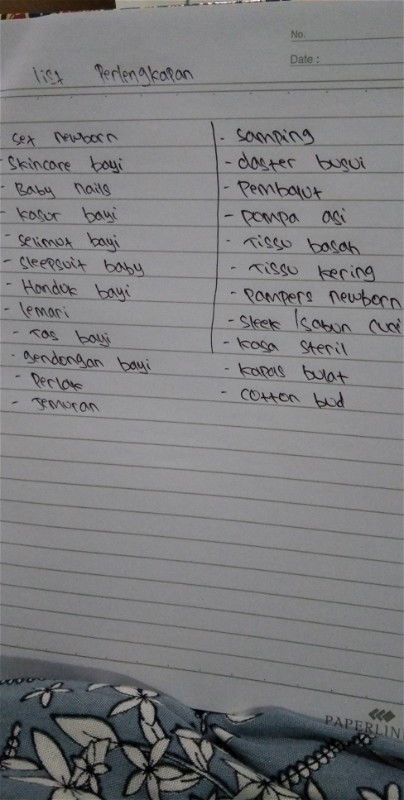 No.
Date :
list Perlengkapan
- set newborn
- Skincare bayi
- Baby nails
- kasur bayi
- selimut bayi
- sleepsuit baby
- Handuk bayi
- lemari
- Tas bayi
- gendongan bayi
- Perlak
- Jemuran
- Samping
- daster busui
- Pembalut
- pompa asi
- Tissu basah
- Tissu kering
- Pampers newborn
- Sleek / sabun cuci
- kasa steril
- kapas bulat
- cotton bud
PAPERLINE